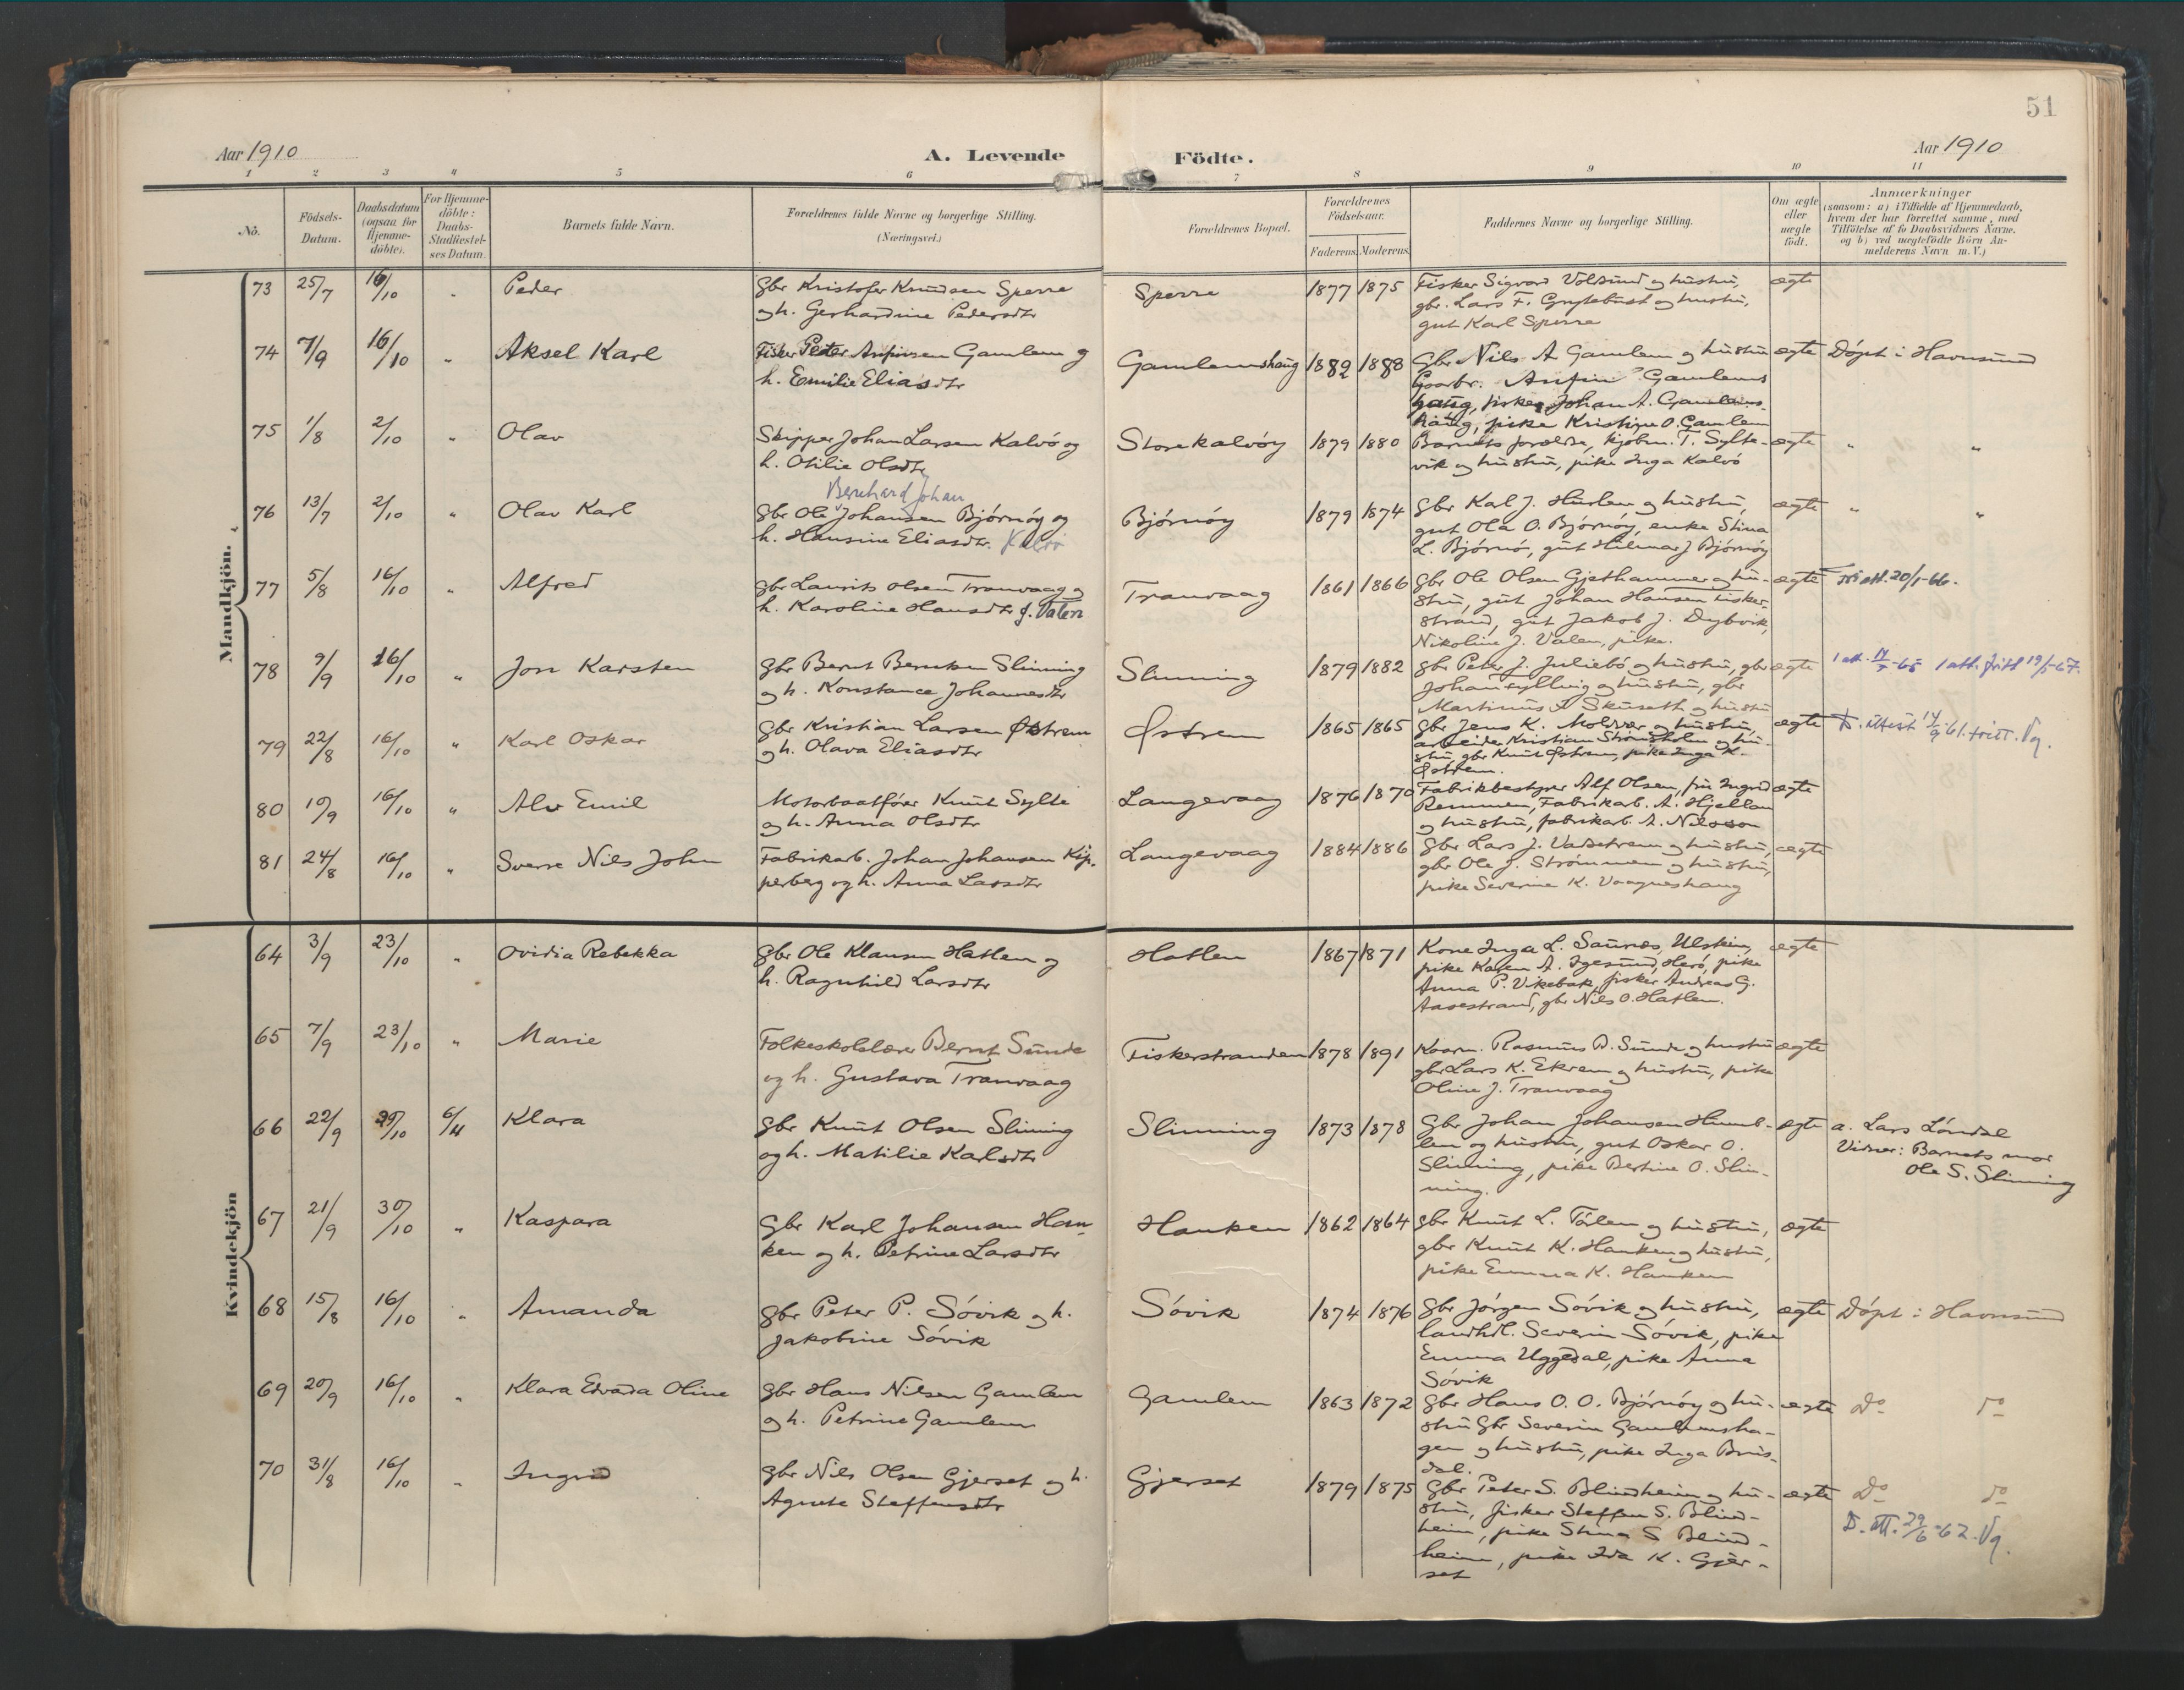 51
Aar 1910
A. Levende Födte.
Aar 1910
1 2 3 4 5 6 7 8 9 10 11
No.
Födsels-
Datum.
Daabsdatum
(ogsaa for
Hjemme-
döbte).
For Hjemme-
döbte:
Daabs-
Stadfæstel-
ses Datum.
Barnets fulde Navn.
Forældrenes fulde Navne og borgerlige Stilling.
(Næringsvei.)
Forældrenes Bopæl.
Forældrenes
Födselsaar.
Faderens. Moderens.
Faddernes Navne og borgerlige Stilling.
Om ægte
eller
uægte
födt.
Anmærkninger
(saasom: a) i Tilfælde af Hjemmedaab,
hvem der har forrettet samme, med
Tilföielse af to Daabsvidners Navne.
og b) ved uægtefödte Börn An-
melderens Navn m. V.)
Mandkjön.
73 25/7 16/10 " Peder
gbr Kristofer Knudsen Sperre
og h. Gerhardine Pedersdtr
Sperre 1877 1875
Fisker Sigvard Voldsund og hustru,
gbr. Lars F. Grytebust og hustru,
gut Karl Sperre
ægte
74 7/9 16/10 " Aksel Karl
Fisker Peder Anfinsen Gamlem g
h. Emilie Eliasdtr
Gamlemshaug 1882 1888
Gbr Nils A Gamlem og hustru
Gaarbr. Anfin Gamlems
haug, fisker Johan A. Gamlems-
haug, pike Kristine O. Gamlem
ægte Döpt i Havnsund
75 1/8 2/10 " Olav
Skipper Johan Larsen Kalvö og
h. Otilie Olsdtr
Storekalvöy 1879 1880
Barnets forældre, kjøbm. T. Sylte-
vik og hustru, pike Inga Kalvö
ægte " "
76 13/7 2/10 " Olav Karl
Bernhard Johan
gbr Ole Johansen Björnöy og
h. Hansine Eliasdtr. Kalvö
Björnöy 1879 1874
gbr Kal J. Hurlen og hustru,
gut Ola O. Björnöy, enke Stina
L. Björnö, gut Hilmar J Björnöy
ægte " "
77 5/8 16/10 " Alfred
gbr Laurits Olsen Tranvaag g
h. Karoline Hansdtr f. Valen
Tranvaag 1861 1866
gbr Ole Olsen Gjethammer og hu-
stru, gut Johan Hansen Fisker-
strand, gut Jakob J. Dybvik,
Nikoline J. Valen, pike.
ægte att. 20/1-66.
78 9/9 16/10 " Jon Karsten
gbr Bernt Berntsen Slinning
og h. Konstance Johannesdtr
Slinning 1879 1882
gbr Peter J. Juliebö og hustru, gbr
Johan Fylling og hustru, gbr
Martinus A Skuseth og hustru
ægte 1 att. -65 1 att. fritt 19/5-67.
79 22/8 16/10 " Karl Oskar
gbr Kristian Larsen Østrem
og h. Olava Eliasdtr
Østrem 1865 1865
gbr Jens K. Moldvær og hustru,
arbeider Kristian Strømsholm og hu-
stru, gbr Knut Østrem, pike Inga K.
Østrem.
ægte D. attest 14/9-61. fritt. Vg.
80 19/9 16/10 " Alv Emil
Motorbaatfører Knut Sylte
og h. Anna Olsdtr
Langevaag 1876 1870
Fabrikbestyrer Alf Olsen, fru Ingrid
Remmen, Fabrikarb. A. Hjellan
og hustru, fabrikarb. A. Nilsson
ægte
81 24/8 16/10 " Sverre Nils John
Fabrikarb. Johan Johansen Kip-
perberg og h. Anna Larsdtr
Langevaag 1884 1886
gbr Lars J. Vadsetrem og hustru,
gbr Ole J. Strømmen og hustru,
pike Severine K. Vaagneshaug
ægte
Kvindekjön
64 3/9 23/10 " Ovidia Rebekka
gbr Ole Klausen Hatlem g
h. Ragnhild Larsdtr
Hatlen 1867 1871
Kone Inga L. Saunes, Ulstein,
pike Karen A. Igesund, Herö, pike
Anna P. Vikebak, fisker Andreas G.
Aasestrand, gbr Nils O. Hatlem.
ægte
65 7/9 23/10 " Marie
Folkeskolelærer Bernt Sunde
og h. Gustava Tranvaag
Fiskerstranden 1878 1891
Kaarm. Rasmus B. Sunde og hustru
gbr Lars K. Ekrem og hustru, pike
Oline J. Tranvaag
ægte
66 22/9 30/10 6/11 Klara
gbr Knut Olsen Slinning
og h. Matilie Karlsdtr
Slinning 1873 1878
Gbr Johan Johansen Humb-
len og hustru, gut Oskar O.
Slinning, pike Bertine O. Slin-
ning.
ægte a. Lars Löndal
Vidner: Barnets mor
Ole S. Slinning
67 21/9 30/10 " Kaspara
gbr Karl Johansen Han-
ken og h. Petrine Larsdtr
Hanken 1862 1864
gbr Knut L. Törlen og hustru,
gbr Knut K. Hanken og hustru,
pike Emma K. Hanken
ægte
68 15/8 16/10 " Amanda
gbr Peter P. Sövik og h.
Jakobine Sövik
Sövik 1874 1876
gbr Jörgen Sövik og hustru,
landhdl. Severin Sövik, pike
Emma Uggedal, pike Anna
Sövik
ægte Döpt i Havnsund
69 20/9 16/10 " Klara Edvarda Oline
gbr Hans Nilsen Gamlem
og h. Petrine Gamlem
Gamlem 1863 1872
gbr Hans O. O. Björnöy og hu-
stru Gbr Severin Gamlemsha-
gen og hustru, pike Inga Brus-
dal.
ægte Do do
70 31/8 16/10 " Ingrid
gbr Nils Olsen Gjerset og h.
Agnete Steffensdtr
Gjerset 1879 1875
gbr Peter S. Blindheim og hu-
stru, fisker Steffen S. Blind-
heim, pike Stina S Blind-
heim, pike Ida K. Gjer-
set
ægte Do do
D. att. 29/6-62. Vg.